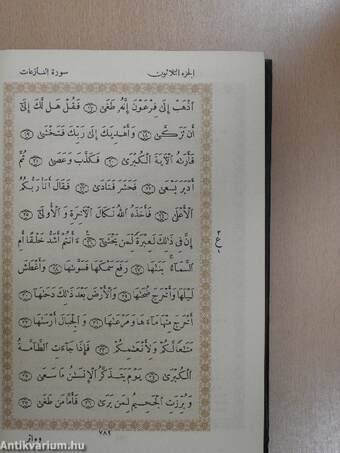 الجزء الثلاثون
سورة النازعات
ٱذْهَبْ إِلَىٰ فِرْعَوْنَ إِنَّهُۥ طَغَىٰ ﴿١٧﴾ فَقُلْ هَل لَّكَ إِلَىٰٓ
أَن تَزَكَّىٰ ﴿١٨﴾ وَأَهْدِيَكَ إِلَىٰ رَبِّكَ فَتَخْشَىٰ ﴿١٩﴾
فَأَرَىٰهُ ٱلْءَايَةَ ٱلْكُبْرَىٰ ﴿٢٠﴾ فَكَذَّبَ وَعَصَىٰ ﴿٢١﴾ ثُمَّ
أَدْبَرَ يَسْعَىٰ ﴿٢٢﴾ فَحَشَرَ فَنَادَىٰ ﴿٢٣﴾ فَقَالَ أَنَا۠ رَبُّكُمُ
ٱلْأَعْلَىٰ ﴿٢٤﴾ فَأَخَذَهُ ٱللَّهُ نَكَالَ ٱلْءَاخِرَةِ وَٱلْأُولَىٰٓ ﴿٢٥﴾
إِنَّ فِى ذَٰلِكَ لَعِبْرَةً لِّمَن يَخْشَىٰٓ ﴿٢٦﴾ ءَأَنتُمْ أَشَدُّ خَلْقًا أَمِ
ٱلسَّمَآءُ ۚ بَنَىٰهَا ﴿٢٧﴾ رَفَعَ سَمْكَهَا فَسَوَّىٰهَا ﴿٢٨﴾ وَأَغْطَشَ
لَيْلَهَا وَأَخْرَجَ ضُحَىٰهَا ﴿٢٩﴾ وَٱلْأَرْضَ بَعْدَ ذَٰلِكَ دَحَىٰهَآ ﴿٣٠﴾
أَخْرَجَ مِنْهَا مَآءَهَا وَمَرْعَىٰهَا ﴿٣١﴾ وَٱلْجِبَالَ أَرْسَىٰهَا ﴿٣٢﴾
مَتَٰعًا لَّكُمْ وَلِأَنْعَٰمِكُمْ ﴿٣٣﴾ فَإِذَا جَآءَتِ ٱلطَّآمَّةُ
ٱلْكُبْرَىٰ ﴿٣٤﴾ يَوْمَ يَتَذَكَّرُ ٱلْإِنسَٰنُ مَا سَعَىٰ ﴿٣٥﴾
وَبُرِّزَتِ ٱلْجَحِيمُ لِمَن يَرَىٰ ﴿٣٦﴾ فَأَمَّا مَن طَغَىٰ ﴿٣٧﴾
٧٨٩
وءاثر
Antikvarium.hu